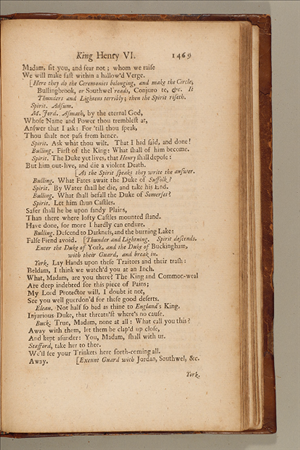 King Henry VI. 1469
Madam, sit you, and fear not; whom we raise
We will make fast within a hallow'd Verge.
[Here they do the Ceremonies belonging, and make the Circle,
Bullingbrook, or Southwel reads, Conjuro te, &c. It
Thunders and Lightens terribly; then the Spirit riseth.
Spirit. Adsum.
M. Jord. Asmath, by the eternal God,
Whose Name and Power thou tremblest at,
Answer that I ask: For 'till thou speak,
Thou shalt not pass from hence.
Spirit. Ask what thou wilt. That I had said, and done!
Bulling. First of the King: What shall of him become.
Spirit. The Duke yet lives, that Henry shall depose:
But him out-live, and die a violent Death.
[As the Spirit speaks they write the answer.
Bulling. What Fates await the Duke of Suffolk?
Spirit. By Water shall he die, and take his End.
Bulling. What shall befall the Duke of Somerset?
Spirit. Let him shun Castles.
Safer shall he be upon sandy Plains,
Than there where lofty Castles mounted stand.
Have done, for more I hardly can endure.
Bulling. Descend to Darkness, and the burning Lake:
False Fiend avoid. [Thunder and Lightning. Spirit descends.
Enter the Duke of York, and the Duke of Buckingham,
with their Guard, and break in.
York. Lay Hands upon these Traitors and their trash:
Beldam, I think we watch'd you at an Inch.
What, Madam, are you there? The King and Common-weal
Are deep indebted for this piece of Pains;
My Lord Protector will, I doubt it not,
See you well guerdon'd for these good deserts.
Elean. Not half so bad as thine to England's King,
Injurious Duke, that threats'st where's no cause.
Buck. True, Madam, none at all: What call you this?
Away with them, let them be clap'd up close,
And kept asunder: You, Madam, shall with us.
Stafford, take her to thee.
We'll see your Trinkets here forth-coming all.
Away. [Exeunt Guard with Jordan, Southwel, &c.
York,